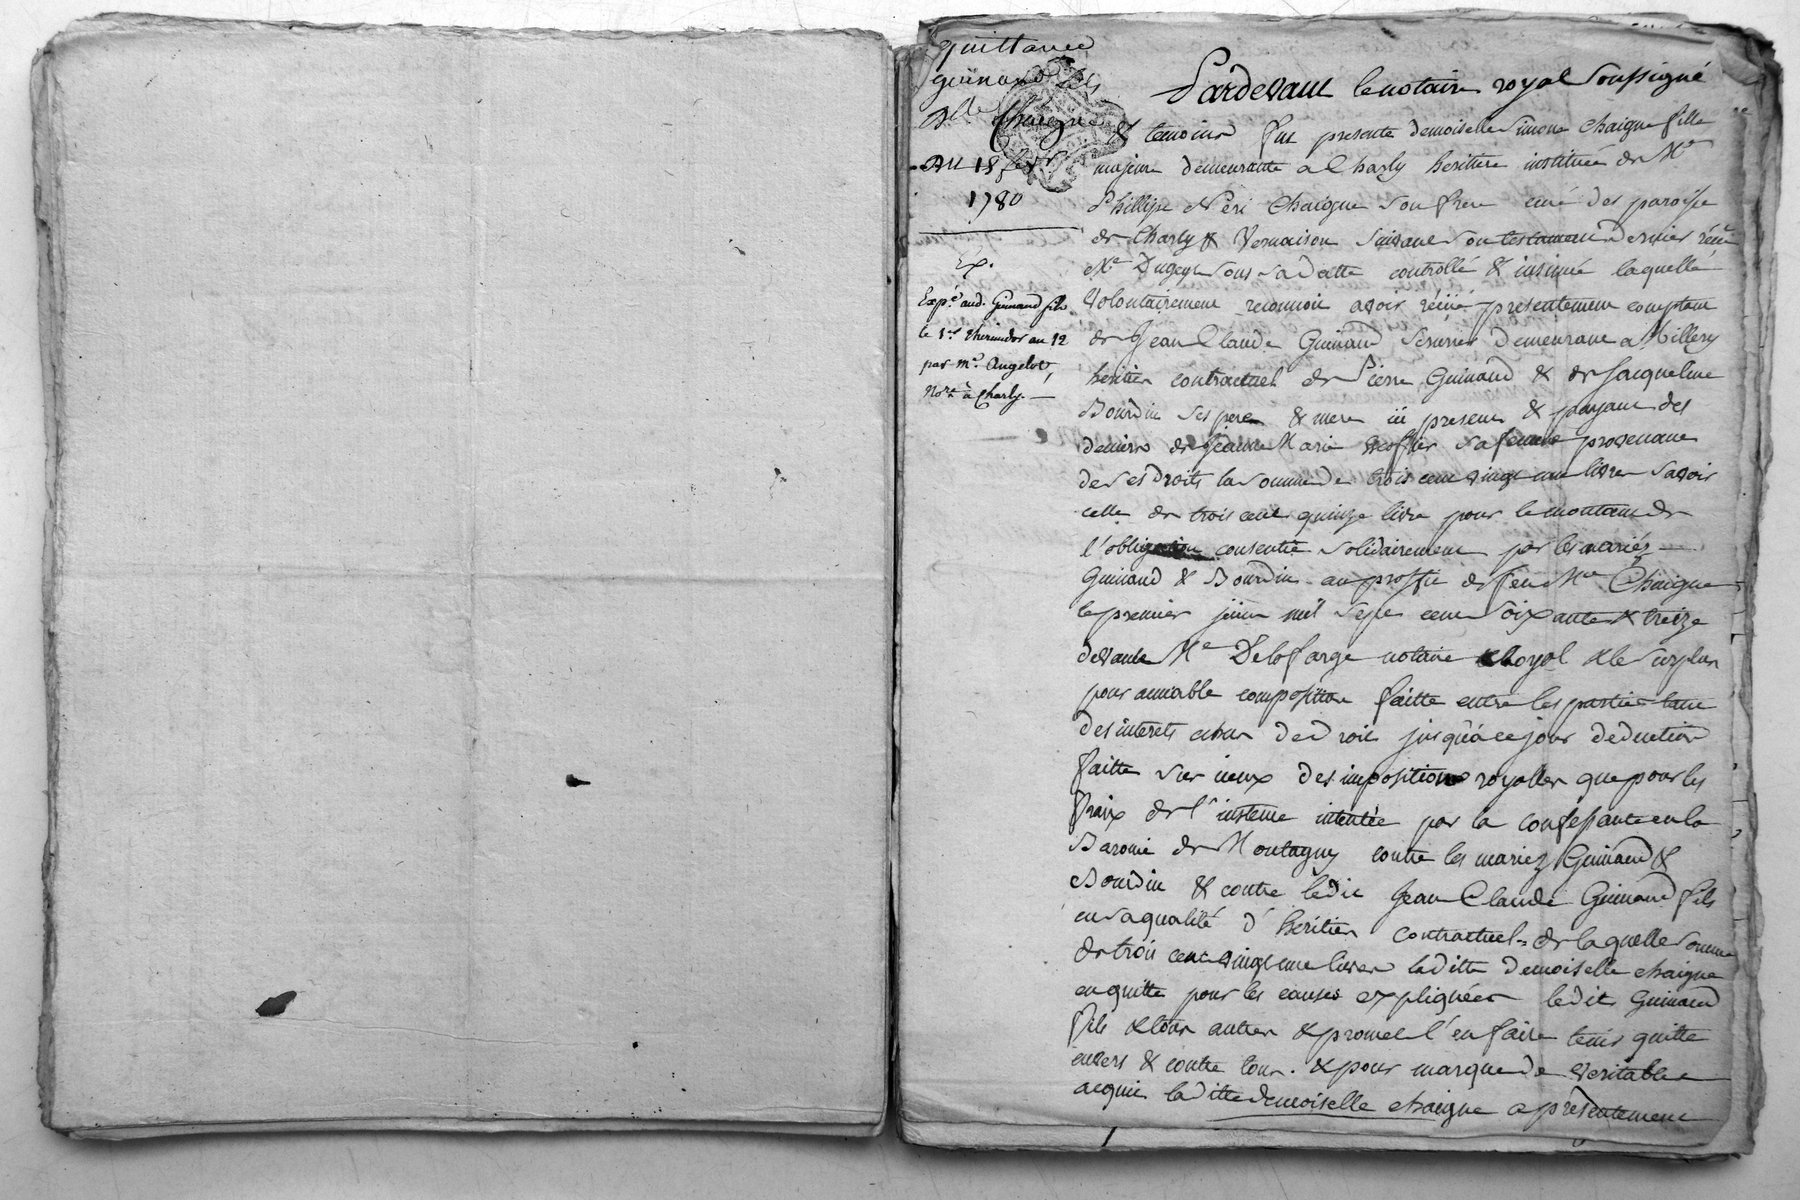 quittance
guinand fils
Dlle Chaigne
Du 18 fevr
1780
Ex.
Expé. aud. Guinand fils
le 1er thermidor an 12
par Me. Angelot,
Nore. à Charly.
Pardevant le notaire royal soussigné
& temoins fut presente demoiselle Simone Chaigne fille
majeure demeurante a Charly heritiere instituée de Me
Phillipe Neri Chaigne son frere curé des paroisse
de Charly & Vernaison suivant son testament dernier
Me Dugeyt sous sa datte controllé & insinué laquelle
volontairement reconnoit avoir presentement comptant
de Jean Claude Guinand demeurant a Millery
heritier contractuel de Pierre Guinand & de Jacqueline
Bourdin ses pere & mere ici present & payant des
deniers de Jeanne Marie sa femme provenant
de ses droits la somme de trois cent vingt une livres savoir
celle de trois cent quinze livre pour le montant de
l'obligation consentie solidairement par les mariéz
Guinand & Bourdin au proffit de feu Me Chaigne
le premier juin mil sept cent soixante & treize
devant Me Delafarge notaire royal & le surplus
pour amiable composition faitte entre les partie tant
des interets de droit jusqu'a ce jour deduction
faitte sur iceux des impositions royalles que pour les
fraix de l'instence intentée par la confessante en la
Baronie de Montagny contre les mariez Guinand &
Bourdin & contre ledit Jean Claude Guinand fils
en sa qualité d'heritier contractuel= de laquelle somme
de trois cent vingt une livres laditte demoiselle chaigne
en quitte pour les causes expliquées ledit Guinand
fils & tous autres & promet l'en faire tenir quitte
envers & contre tous. & pour marque de veritable
acquit laditte demoiselle chaigne a presentement